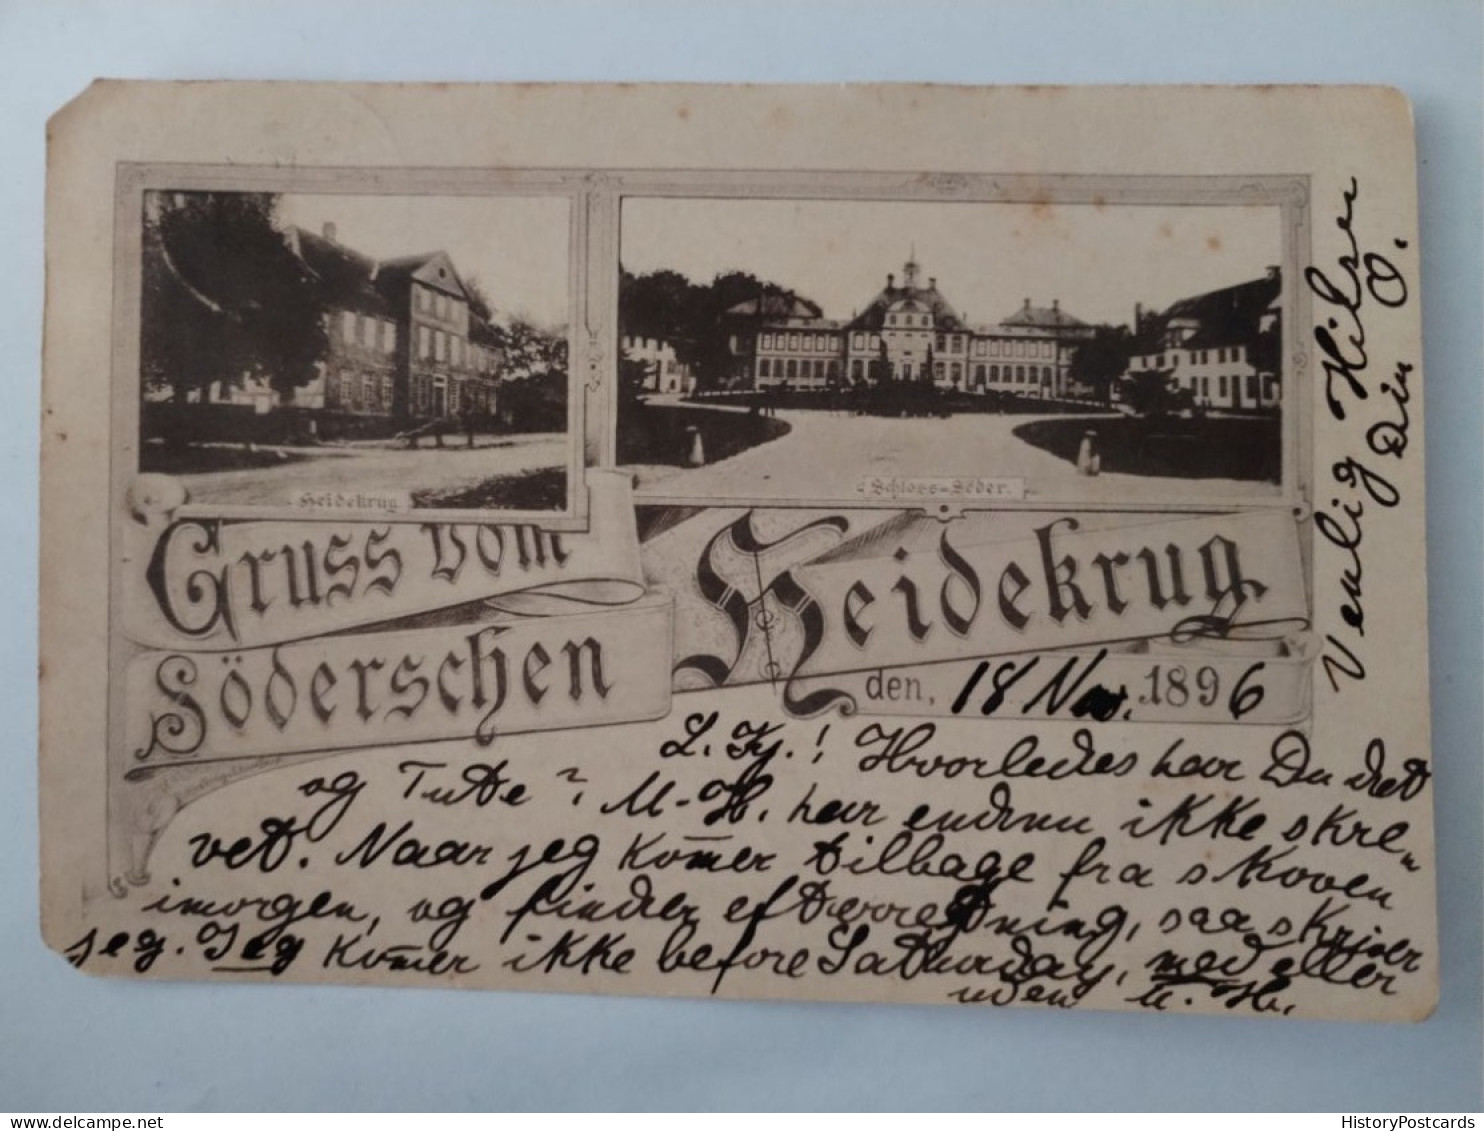 Heidekrug
Schloss-Söder.
Gruss vom
Söderschen
Heidekrug.
den, 18 Nov. 1896
L. Kj.! Hvorledes har Du det
og Tutte? M-H. har endnu ikke skre-
vet. Naar jeg kom̄er tilbage fra skoven
imorgen, og finder efterretning, saa skriver
jeg. Jeg kom̄er ikke before Saturday, med eller
uden M. H.
Venlig Hilsen
Din O.
HistoryPostcards
www.delcampe.net